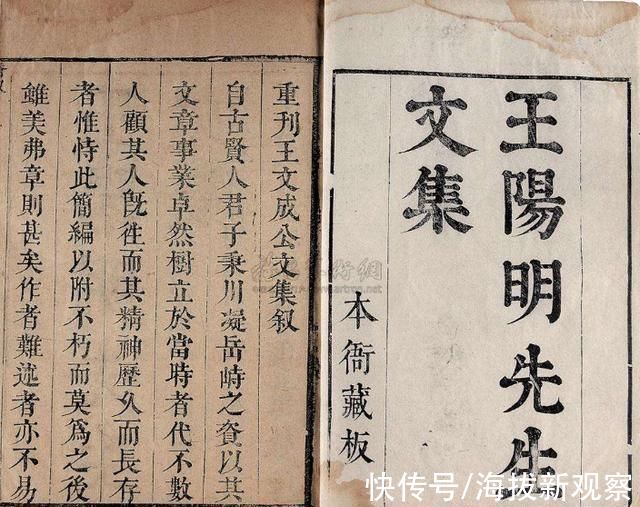 王陽明先生
文集
本衙藏板
重刊王文成公文集叙
自古賢人君子秉川凝岳峙之資以其
文章事業卓然樹立於當時者代不數
人顧其人既徃而其精神歷久而長存
者惟恃此簡編以附不朽而莫爲之後
雖美弗章則甚矣作者難述者亦不易
快传号/海拔新观察